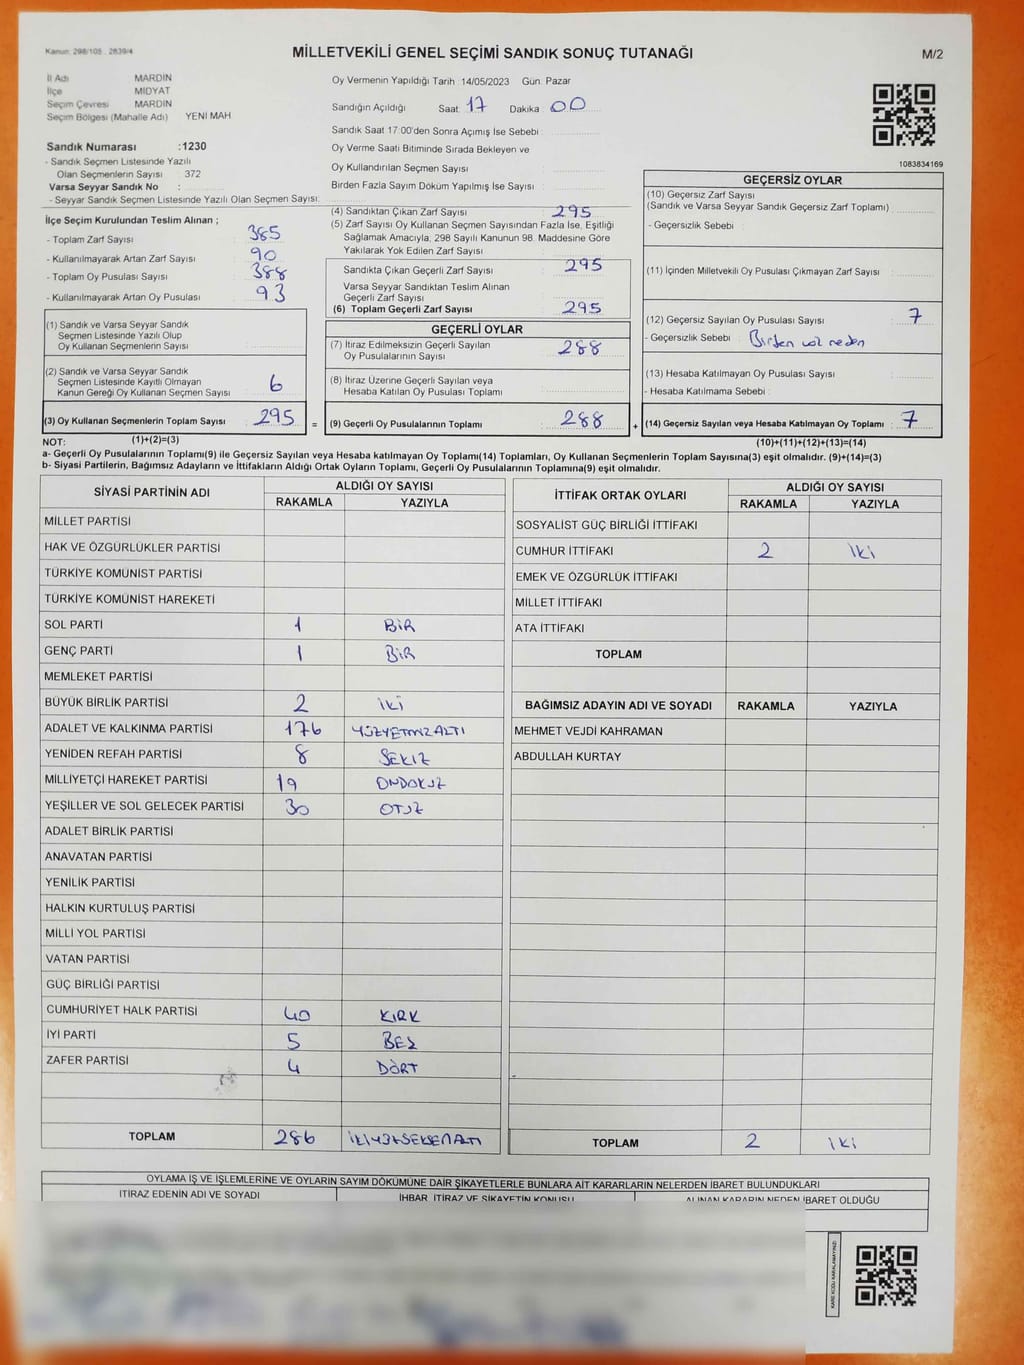 Kanun: 298/105 . 2839/4
MİLLETVEKİLİ GENEL SEÇİMİ SANDIK SONUÇ TUTANAĞI
M/2
İl Adı MARDİN
İlçe MİDYAT
Seçim Çevresi MARDİN
Seçim Bölgesi (Mahalle Adı) YENİ MAH
Sandık Numarası :1230
- Sandık Seçmen Listesinde Yazılı
Olan Seçmenlerin Sayısı : 372
Varsa Seyyar Sandık No :
- Seyyar Sandık Seçmen Listesinde Yazılı Olan Seçmen Sayısı:
İlçe Seçim Kurulundan Teslim Alınan ;
- Toplam Zarf Sayısı : 385
- Kullanılmayarak Artan Zarf Sayısı : 90
- Toplam Oy Pusulası Sayısı : 388
- Kullanılmayarak Artan Oy Pusulası : 93
(1) Sandık ve Varsa Seyyar Sandık
Seçmen Listesinde Yazılı Olup
Oy Kullanan Seçmenlerin Sayısı :
(2) Sandık ve Varsa Seyyar Sandık
Seçmen Listesinde Kayıtlı Olmayan
Kanun Gereği Oy Kullanan Seçmen Sayısı : 6
(3) Oy Kullanan Seçmenlerin Toplam Sayısı : 295
Oy Vermenin Yapıldığı Tarih :14/05/2023 Gün: Pazar
Sandığın Açıldığı Saat: 17 Dakika : 00
Sandık Saat 17:00'den Sonra Açımış İse Sebebi :
Oy Verme Saati Bitiminde Sırada Bekleyen ve
Oy Kullandırılan Seçmen Sayısı :
Birden Fazla Sayım Döküm Yapılmış İse Sayısı :
(4) Sandıktan Çıkan Zarf Sayısı : 295
(5) Zarf Sayısı Oy Kullanan Seçmen Sayısından Fazla İse, Eşitliği
Sağlamak Amacıyla; 298 Sayılı Kanunun 98. Maddesine Göre
Yakılarak Yok Edilen Zarf Sayısı :
Sandıkta Çıkan Geçerli Zarf Sayısı : 295
Varsa Seyyar Sandıktan Teslim Alınan
Geçerli Zarf Sayısı :
(6) Toplam Geçerli Zarf Sayısı : 295
GEÇERLİ OYLAR
(7) İtiraz Edilmeksizin Geçerli Sayılan
Oy Pusulalarının Sayısı : 288
(8) İtiraz Üzerine Geçerli Sayılan veya
Hesaba Katılan Oy Pusulası Toplamı :
= (9) Geçerli Oy Pusulalarının Toplamı : 288 +
1083834169
GEÇERSİZ OYLAR
(10) Geçersiz Zarf Sayısı
(Sandık ve Varsa Seyyar Sandık Geçersiz Zarf Toplamı) :
- Geçersizlik Sebebi :
(11) İçinden Milletvekili Oy Pusulası Çıkmayan Zarf Sayısı :
(12) Geçersiz Sayılan Oy Pusulası Sayısı : 7
- Geçersizlik Sebebi : Birden neden
(13) Hesaba Katılmayan Oy Pusulası Sayısı :
- Hesaba Katılmama Sebebi :
(14) Geçersiz Sayılan veya Hesaba Katılmayan Oy Toplamı : 7
NOT: (1)+(2)=(3)
(10)+(11)+(12)+(13)=(14)
a- Geçerli Oy Pusulalarının Toplamı(9) ile Geçersiz Sayılan veya Hesaba katılmayan Oy Toplamı(14) Toplamları, Oy Kullanan Seçmenlerin Toplam Sayısına(3) eşit olmalıdır. (9)+(14)=(3)
b- Siyasi Partilerin, Bağımsız Adayların ve İttifakların Aldığı Ortak Oyların Toplamı, Geçerli Oy Pusulalarının Toplamına(9) eşit olmalıdır.
SİYASİ PARTİNİN ADI ALDIĞI OY SAYISI
RAKAMLA YAZIYLA
MİLLET PARTİSİ
HAK VE ÖZGÜRLÜKLER PARTİSİ
TÜRKİYE KOMÜNİST PARTİSİ
TÜRKİYE KOMÜNİST HAREKETİ
SOL PARTİ 1 BİR
GENÇ PARTİ 1 BİR
MEMLEKET PARTİSİ
BÜYÜK BİRLİK PARTİSİ 2 iki
ADALET VE KALKINMA PARTİSİ 176 YÜZYETMİZALTI
YENİDEN REFAH PARTİSİ 8 SEKİZ
MİLLİYETÇİ HAREKET PARTİSİ 19 ONDOKUZ
YEŞİLLER VE SOL GELECEK PARTİSİ 30 OTUZ
ADALET BİRLİK PARTİSİ
ANAVATAN PARTİSİ
YENİLİK PARTİSİ
HALKIN KURTULUŞ PARTİSİ
MİLLİ YOL PARTİSİ
VATAN PARTİSİ
GÜÇ BİRLİĞİ PARTİSİ
CUMHURİYET HALK PARTİSİ 40 KIRK
İYİ PARTİ 5 BEŞ
ZAFER PARTİSİ 4 DÖRT
TOPLAM 286 İKİYÜZSEKSENALTI
İTTİFAK ORTAK OYLARI ALDIĞI OY SAYISI
RAKAMLA YAZIYLA
SOSYALİST GÜÇ BİRLİĞİ İTTİFAKI
CUMHUR İTTİFAKI 2 iki
EMEK VE ÖZGÜRLÜK İTTİFAKI
MİLLET İTTİFAKI
ATA İTTİFAKI
TOPLAM
BAĞIMSIZ ADAYIN ADI VE SOYADI RAKAMLA YAZIYLA
MEHMET VEJDİ KAHRAMAN
ABDULLAH KURTAY
TOPLAM 2 iki
OYLAMA İŞ VE İŞLEMLERİNE VE OYLARIN SAYIM DÖKÜMÜNE DAİR ŞİKAYETLERLE BUNLARA AİT KARARLARIN NELERDEN İBARET BULUNDUKLARI
İTİRAZ EDENİN ADI VE SOYADI İHBAR, İTİRAZ VE ŞİKAYETİN KONUSU ALINAN KARARIN NEDEN İBARET OLDUĞU
KARE KODU KARALAMAYINIZ!